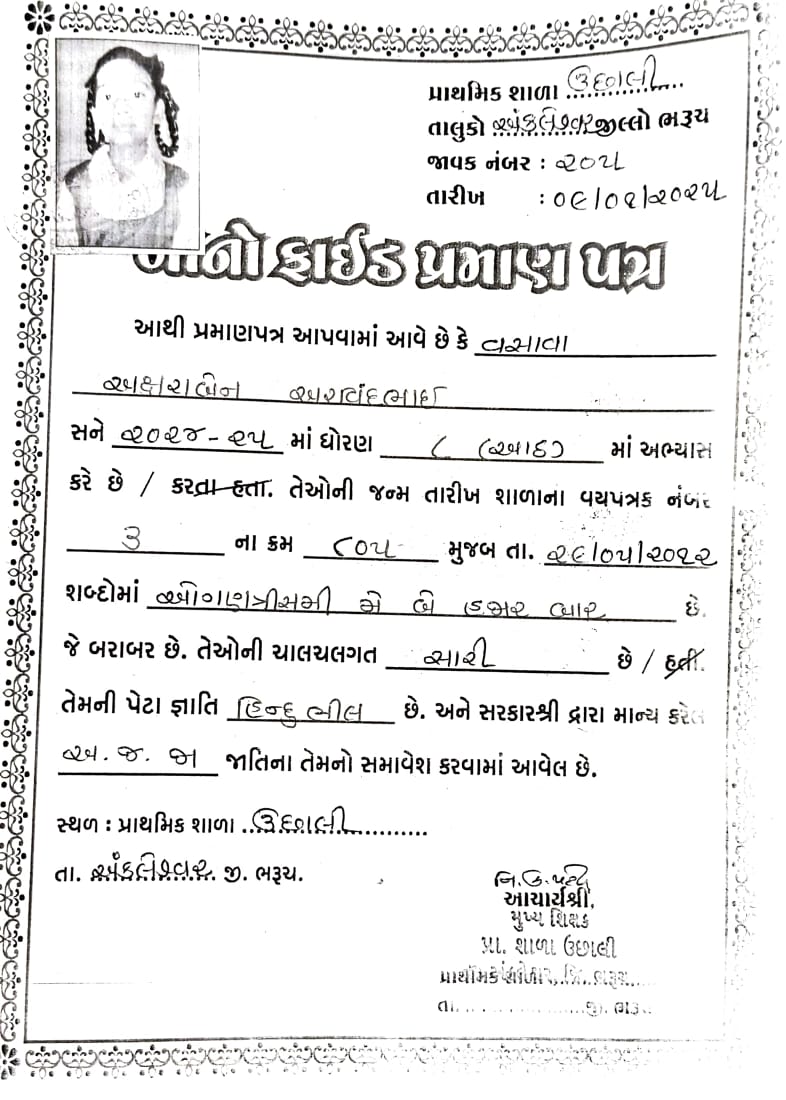 પ્રાથમિક શાળા ઉછાલી
તાલુકો અંકલેશ્વર જીલ્લો ભરૂચ
જાવક નંબર : ૨૦૫
તારીખ : ૦૯/૦૧/૨૦૨૫
બોનોફાઈડ પ્રમાણ પત્ર
આથી પ્રમાણપત્ર આપવામાં આવે છે કે વસાવા
અક્ષરાબેન અરવિંદભાઈ
સને ૨૦૨૪-૨૫ માં ધોરણ ૮ (આઠ) માં અભ્યાસ
કરે છે / કરતા હતા. તેઓની જન્મ તારીખ શાળાના વયપત્રક નંબર
૩ ના ક્રમ ૮૦૫ મુજબ તા. ૨૯/૦૫/૨૦૧૨
શબ્દોમાં ઓગણત્રીસમી મે બે હજાર બાર છે.
જે બરાબર છે. તેઓની ચાલચલગત સારી છે / હતી.
તેમની પેટા જ્ઞાતિ હિન્દુ ભીલ છે. અને સરકારશ્રી દ્વારા માન્ય કરેલ
અ.જ.જા જાતિના તેમનો સમાવેશ કરવામાં આવેલ છે.
સ્થળ : પ્રાથમિક શાળા ઉછાલી
તા. અંકલેશ્વર. જી. ભરૂચ.
આચાર્યશ્રી,
મુખ્ય શિક્ષક
પ્રા. શાળા ઉછાલી
પ્રાથમિક શાળા જિ. ભરૂચ
તા. જી. ભરૂ